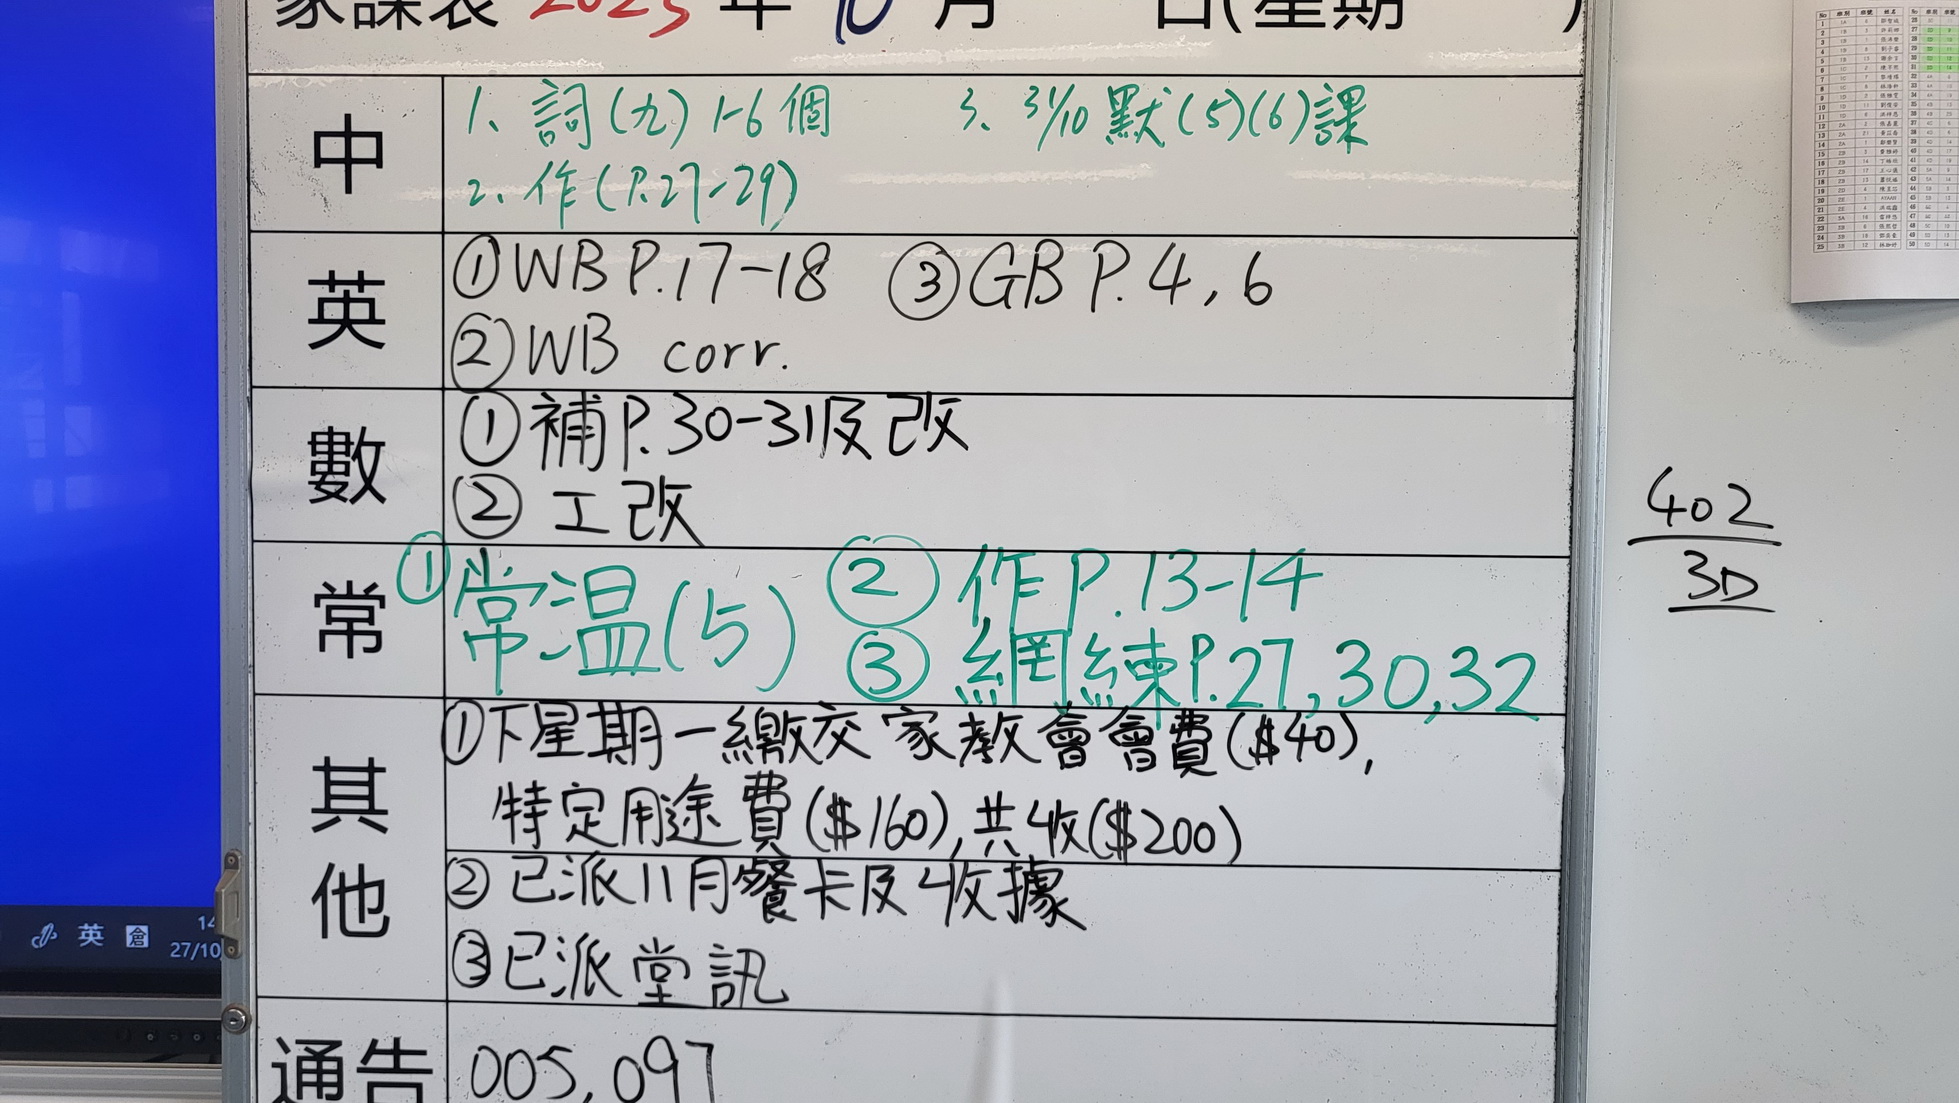 家課表 2025 年 10 月 日(星期 )
中
1、詞(九) 1-6個 3、31/10 默(5)(6)課
2、作(P.27-29)
英
① WB P.17-18 ③ GB P.4, 6
② WB corr.
數
① 補P.30-31及改
② 工改
常
① 常溫(5) ② 作P.13-14
③ 網練P.27,30,32
其他
① 下星期一繳交家教會會費($40),
特定用途費($160),共收($200)
② 已派11月餐卡及收據
③ 已派堂訊
通告
005,097
402
3D
英 倉
14
27/10